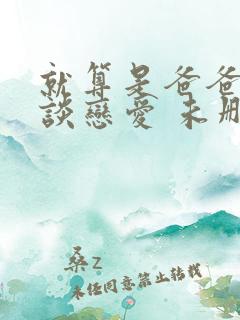 就算是爸爸
談戀愛 未刪
桑z
未经同意禁止转载